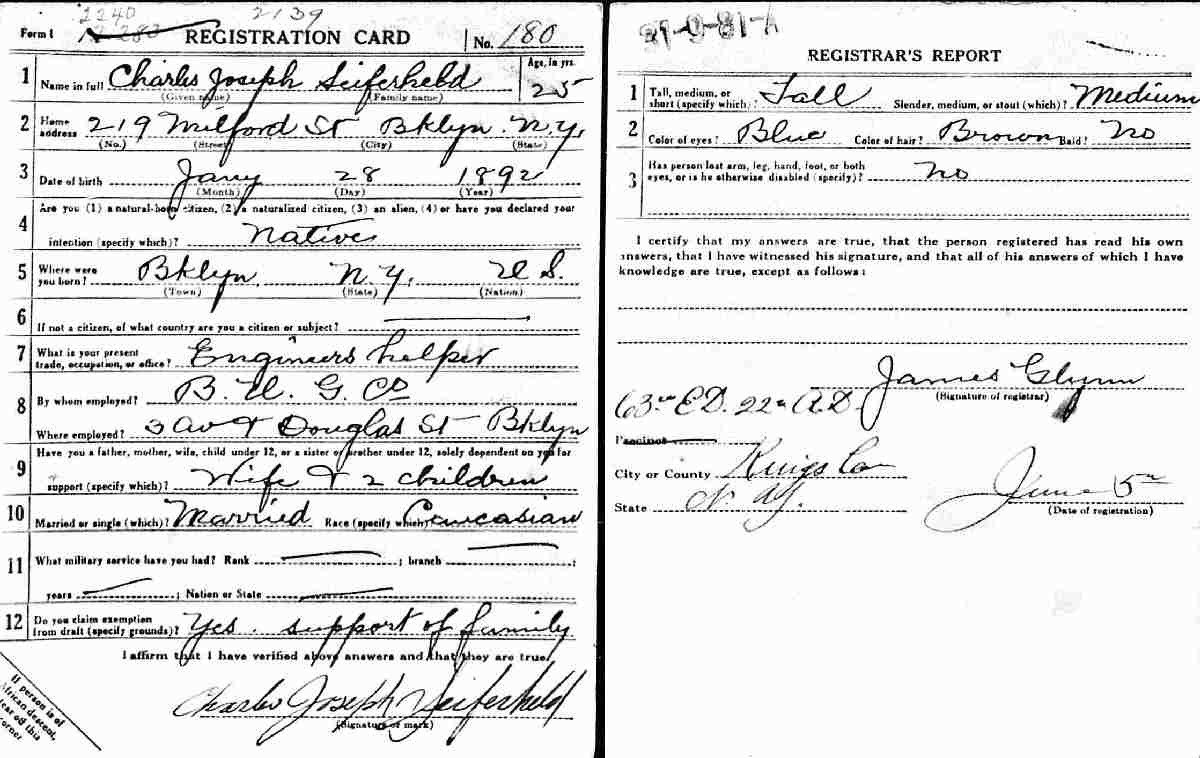 2240 2139
Form 1 REGISTRATION CARD No. 180
1 Name in full Charles Joseph Seiferheld Age, in yrs. 25
(Given name) (Family name)
2 Home address 219 Milford St Bklyn N.Y.
(No.) (Street) (City) (State)
3 Date of birth Jany 28 1892
(Month) (Day) (Year)
4 Are you (1) a natural-born citizen, (2) a naturalized citizen, (3) an alien, (4) or have you declared your
intention (specify which)? Native
5 Where were you born? Bklyn, N.Y. U.S.
(Town) (State) (Nation)
6 If not a citizen, of what country are you a citizen or subject?
7 What is your present trade, occupation, or office? Engineers helper
8 By whom employed? B. U. G. Co
Where employed? 3 av & Douglas St Bklyn
9 Have you a father, mother, wife, child under 12, or a sister or brother under 12, solely dependent on you for
support (specify which)? Wife & 2 children
10 Married or single (which)? Married Race (specify which)? Caucasian
11 What military service have you had? Rank ; branch ;
years ; Nation or State
12 Do you claim exemption from draft (specify grounds)? Yes. support of family
I affirm that I have verified above answers and that they are true.
Charles Joseph Seiferheld
(Signature or mark)
If person is of
African descent,
tear off this
corner
31-9-81-A
REGISTRAR'S REPORT
1 Tall, medium, or short (specify which)? Tall Slender, medium, or stout (which)? Medium
2 Color of eyes? Blue Color of hair? Brown Bald? No
3 Has person lost arm, leg, hand, foot, or both eyes, or is he otherwise disabled (specify)? No
I certify that my answers are true, that the person registered has read his own
answers, that I have witnessed his signature, and that all of his answers of which I have
knowledge are true, except as follows:
James Glynn
(Signature of registrar)
63rd E.D. 22nd A.D.
Precinct
City or County Kings Co
State N.Y.
June 5th
(Date of registration)